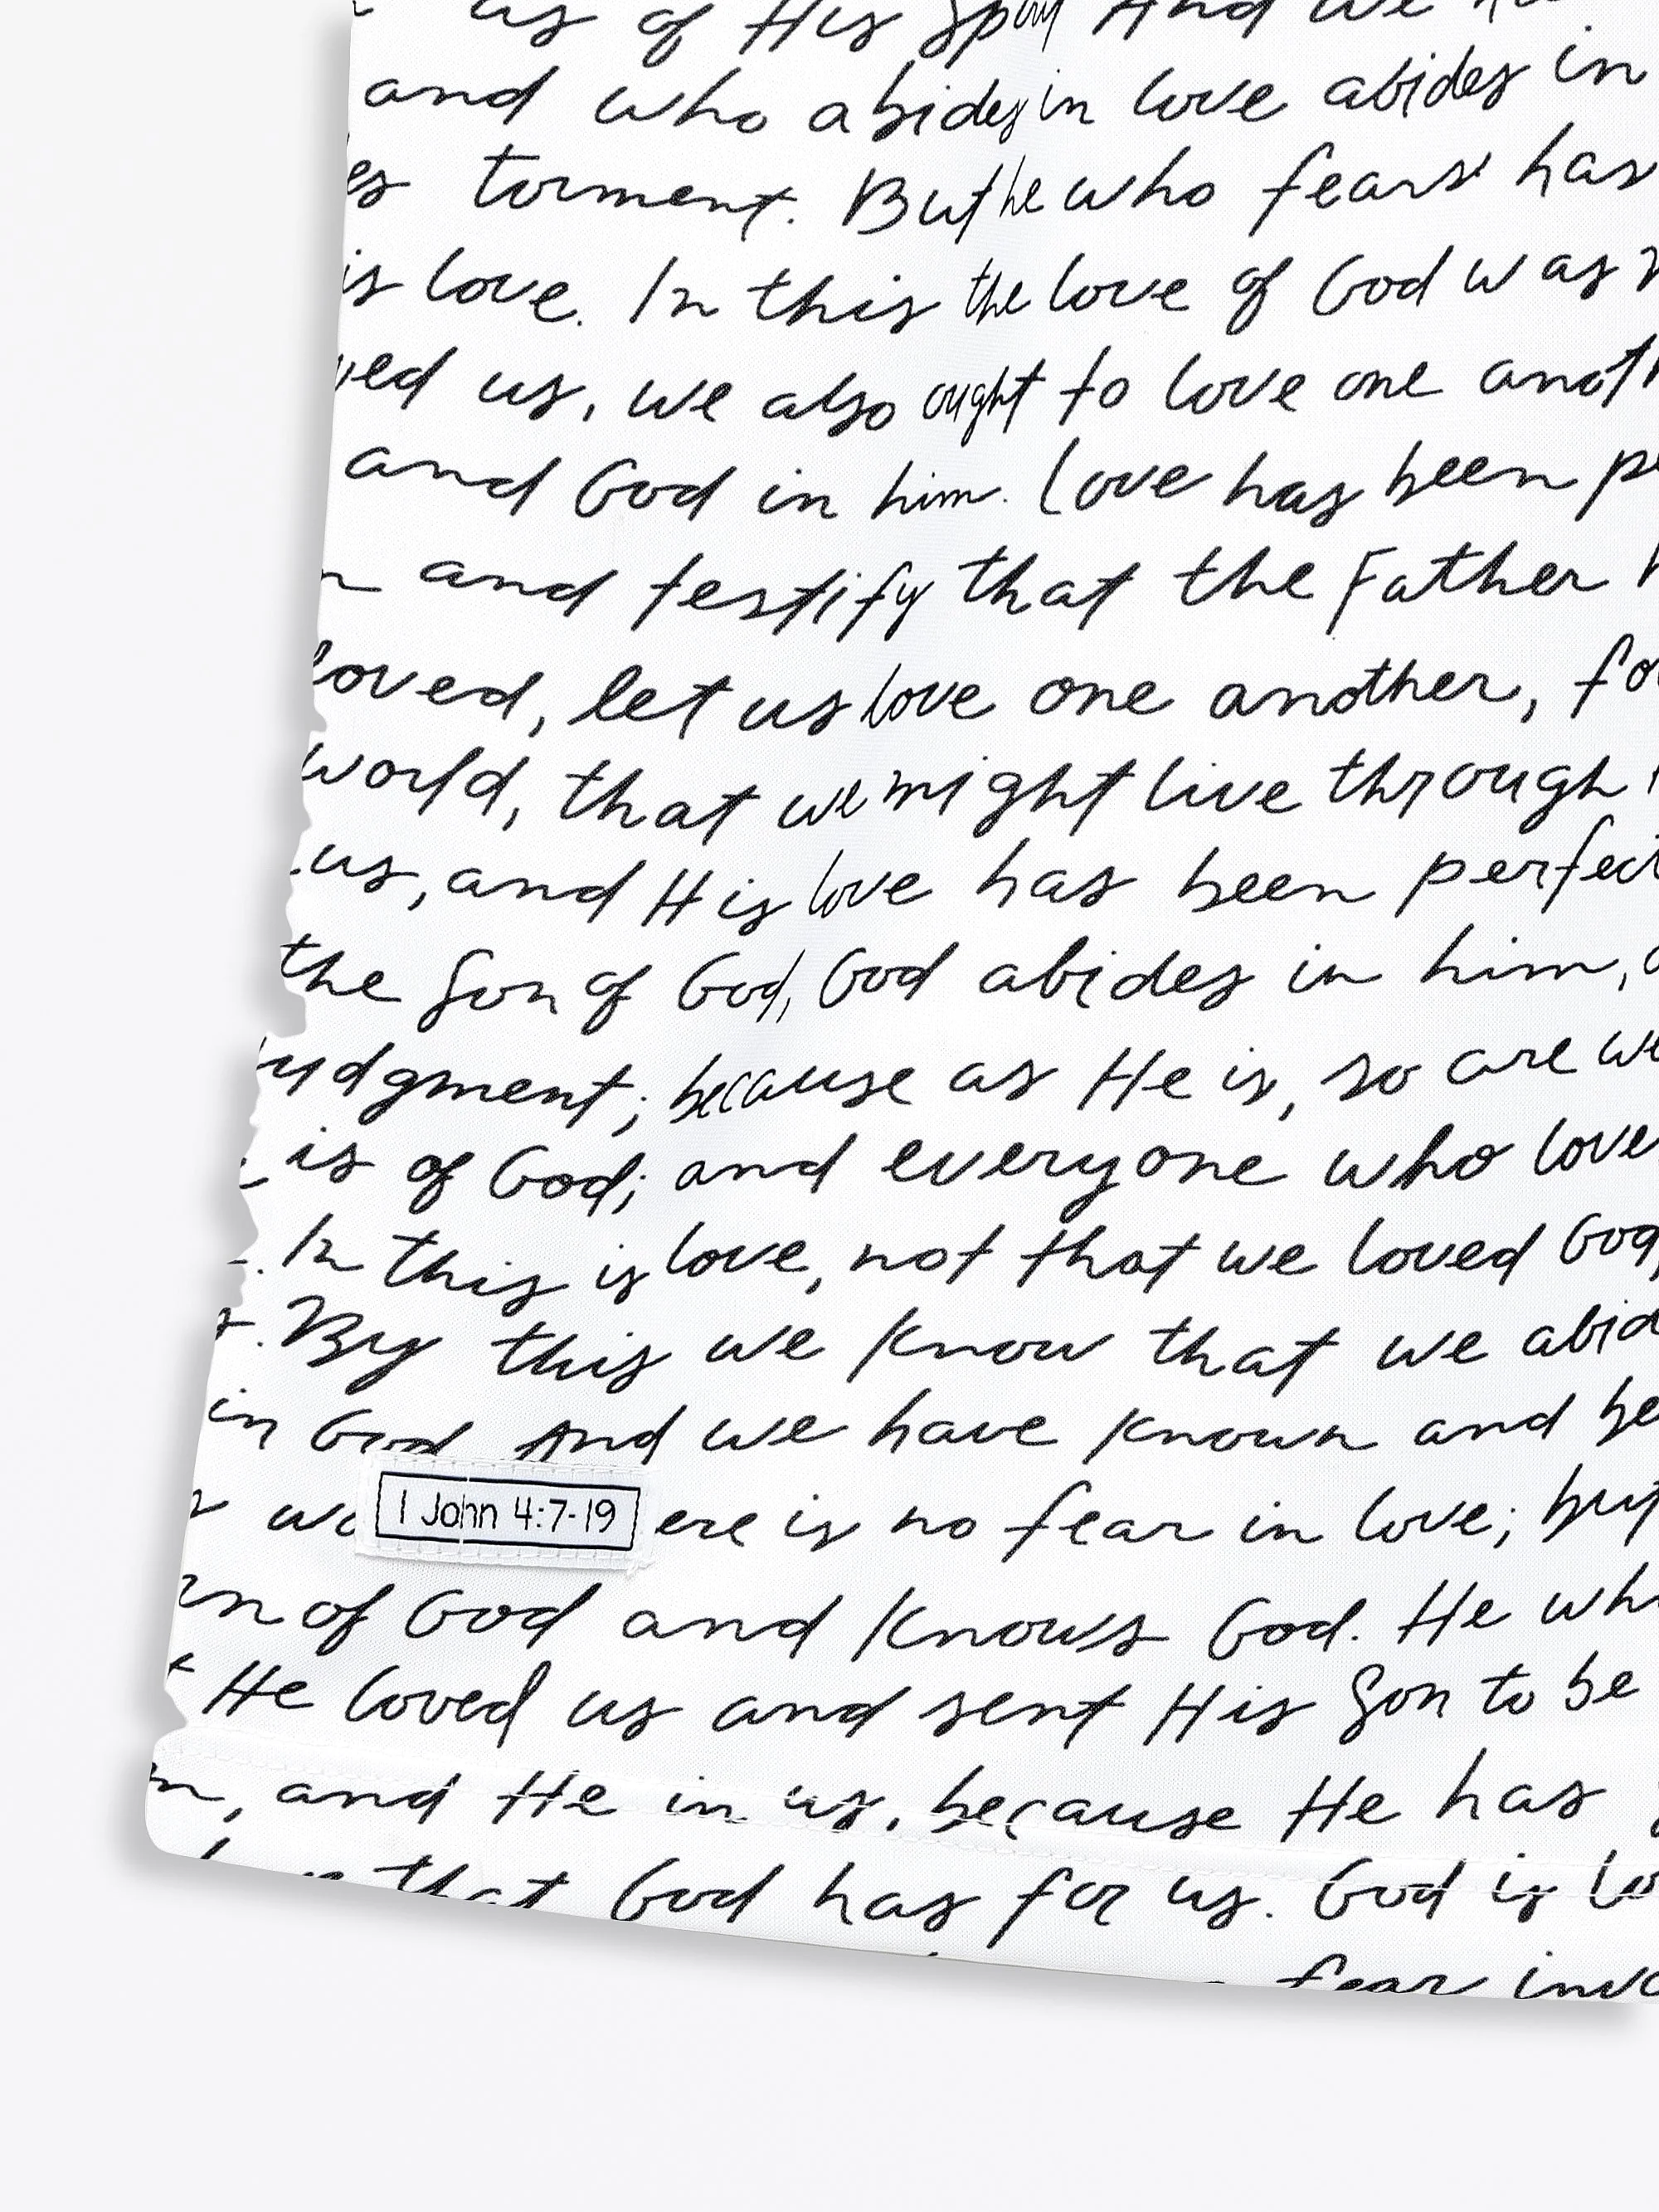 us of His Spirit And we
and who abides in love abides in
torment. But he who fears has
is love. In this the love of God was
us, we also ought to love one
and God in him. Love has been
and testify that the Father
loved, let us love one another,
world, that we might live through
us, and His love has been
the Son of God, God abides in him,
judgment; because as He is, so are we
is of God; and everyone who love
. In this is love, not that we loved God,
. By this we know that we
in God And we have known and
1 John 4:7-19
ere is no fear in love; but
of God and knows God. He
He loved us and sent His Son to be
, and He in us, because He has
that God has for us. God is
fear